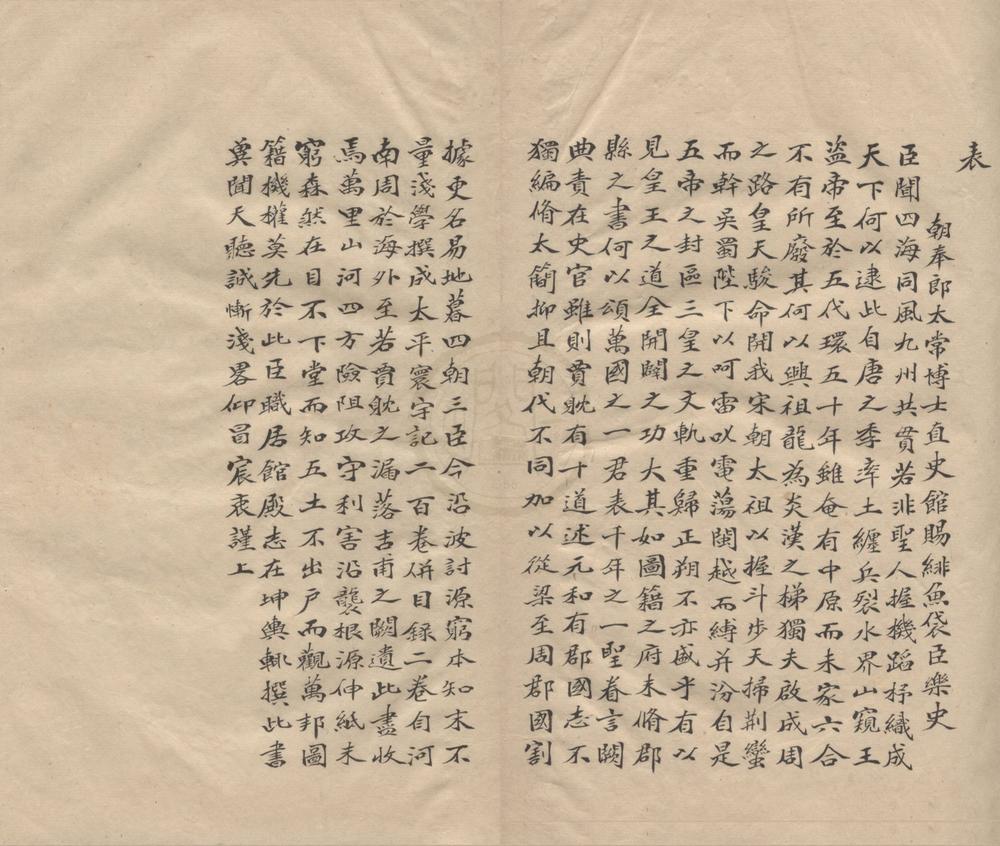 表
朝奉郎太常博士直史館賜緋魚袋臣樂史
臣聞四海同風九州共貫若非聖人握機蹈杼織成
天下何以逮此自唐之季率土纏兵裂水界山窺王
盜帝至於五代環五十年雖奄有中原而未家六合
不有所廢其何以興祖龍為炎漢之梯獨夫啟成周
之路皇天駿命開我宋朝太祖以握斗步天掃荆蠻
而幹吳蜀陛下以呵雷叱電蕩閩越而縛并汾自是
五帝之封區三皇之文軌重歸正朔不亦盛乎有以
見皇王之道全開闢之功大其如圖籍之府未脩郡
縣之書何以頌萬國之一君表千年之一聖眷言闕
典責在史官雖則賈耽有十道述元和有郡國志不
獨編脩太簡抑且朝代不同加以從梁至周郡國割
據更名易地暮四朝三臣今沿波討源窮本知末不
量淺學撰成太平寰宇記二百卷併目録二卷自河
南周於海外至若賈躭之漏落吉甫之闕遺此盡收
焉萬里山河四方險阻攻守利害沿襲根源伸紙未
窮森然在目不下堂而知五土不出戶而觀萬邦圖
籍機權莫先於此臣職居館殿志在坤輿輒撰此書
冀聞天聽誠慚淺畧仰冒宸衷謹上